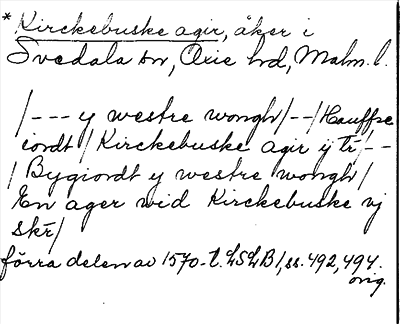 * Kirckebuske agir, åker i
Svedala sn, Oxie hd, Malm. l.
/--- y westre wongh/--/Hauffse
iordt/Kirckebuske agir ij tr/--
/Bygiordt y westre wongh/
En ager wid Kirckebuske vj
skr/
förra delen av 1570-t. LSLB 1, ss. 492, 494.
orig.